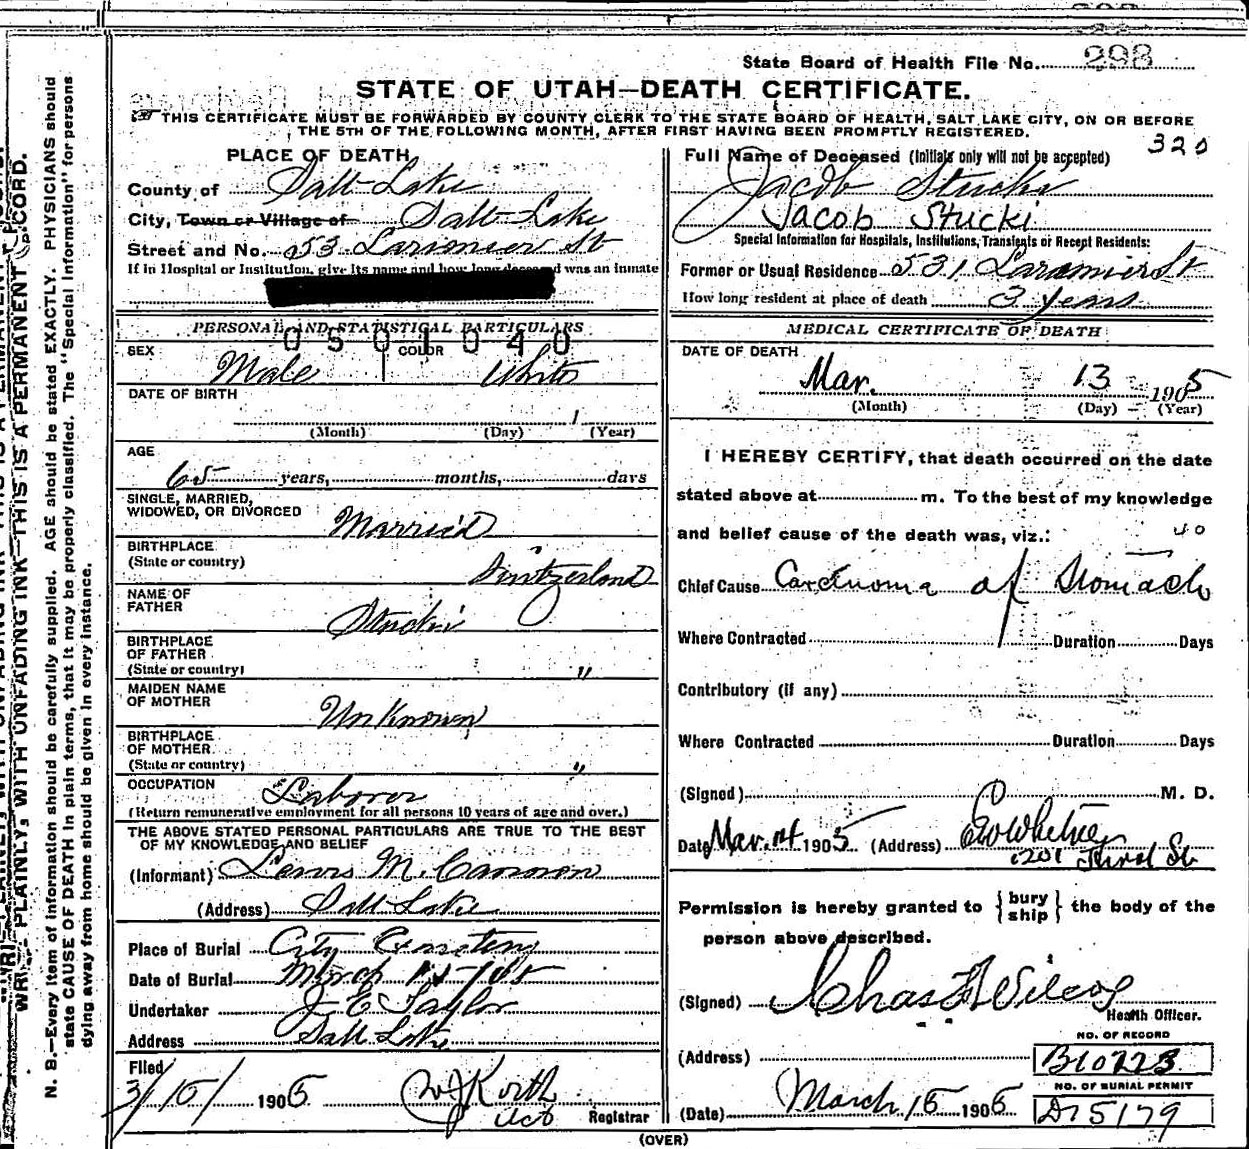 298
State Board of Health File No. 298
STATE OF UTAH—DEATH CERTIFICATE.
THIS CERTIFICATE MUST BE FORWARDED BY COUNTY CLERK TO THE STATE BOARD OF HEALTH, SALT LAKE CITY, ON OR BEFORE
THE 5TH OF THE FOLLOWING MONTH, AFTER FIRST HAVING BEEN PROMPTLY REGISTERED.
320
WRITE PLAINLY, WITH UNFADING INK—THIS IS A PERMANENT RECORD.
N. B.—Every item of information should be carefully supplied. AGE should be stated EXACTLY. PHYSICIANS should
state CAUSE OF DEATH in plain terms, that it may be properly classified. The "Special Information" for persons
dying away from home should be given in every instance.
PLACE OF DEATH
County of Salt Lake
City, Town or Village of Salt Lake
Street and No. 53 Larimier St
If in Hospital or Institution, give its name and how long deceased was an inmate
PERSONAL AND STATISTICAL PARTICULARS
0501040
SEX Male COLOR White
DATE OF BIRTH
1
(Month) (Day) (Year)
AGE
65 years, months, days
SINGLE, MARRIED,
WIDOWED, OR DIVORCED Married
BIRTHPLACE
(State or country) Switzerland
NAME OF
FATHER Stucki
BIRTHPLACE
OF FATHER
(State or country) "
MAIDEN NAME
OF MOTHER Unknown
BIRTHPLACE
OF MOTHER
(State or country) "
OCCUPATION Laborer
(Return remunerative employment for all persons 10 years of age and over.)
THE ABOVE STATED PERSONAL PARTICULARS ARE TRUE TO THE BEST
OF MY KNOWLEDGE AND BELIEF
(Informant) Lewis M. Cannon
(Address) Salt Lake
Place of Burial City Cemetery
Date of Burial March
Undertaker J E Taylor
Address Salt Lake
Filed
3/15/ 1905
Act Registrar
Full Name of Deceased (Initials only will not be accepted)
Jacob Stucki
Jacob Stucki
Special Information for Hospitals, Institutions, Transients or Recent Residents:
Former or Usual Residence 531 Laramier St
How long resident at place of death 3 years
MEDICAL CERTIFICATE OF DEATH
DATE OF DEATH
Mar. 13 1905
(Month) (Day) (Year)
I HEREBY CERTIFY, that death occurred on the date
stated above at m. To the best of my knowledge
and belief cause of the death was, viz.: 40
Chief Cause Carcinoma of Stomach
Where Contracted Duration Days
Contributory (if any)
Where Contracted Duration Days
(Signed) M. D.
Date Mar. 14 1905 (Address) E W Whitney
1201 Third St
Permission is hereby granted to { bury ship } the body of the
person above described.
(Signed) Chas F Wilcox
Health Officer.
NO. OF RECORD
(Address) B10223
NO. OF BURIAL PERMIT
(Date) March 15 1905 D15179
(OVER)